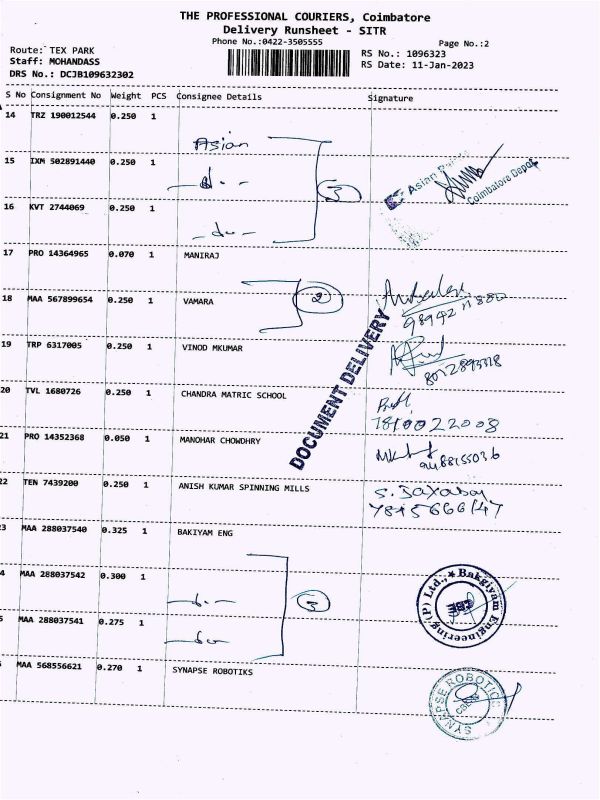 THE PROFESSIONAL COURIERS, Coimbatore
Delivery Runsheet - SITR
Phone No.:0422-3505555
Page No.:2
Route: TEX PARK
Staff: MOHANDASS
DRS No.: DCJB109632302
RS No.: 1096323
RS Date: 11-Jan-2023
S No Consignment No Weight PCS Consignee Details Signature
14 TRZ 190012544 0.250 1
Asian
15 IXM 502891440 0.250 1
3
Asian
Coimbatore Depot
16 KVT 2744069 0.250 1
17 PRO 14364965 0.070 1 MANIRAJ
18 MAA 567899654 0.250 1 VAMARA
2
19 TRP 6317005 0.250 1 VINOD MKUMAR
DOCUMENT DELIVERY
20 TVL 1680726 0.250 1 CHANDRA MATRIC SCHOOL
21 PRO 14352368 0.050 1 MANOHAR CHOWDHRY
22 TEN 7439200 0.250 1 ANISH KUMAR SPINNING MILLS
3 MAA 288037540 0.325 1 BAKIYAM ENG
4 MAA 288037542 0.300 1
3
Bakgiyam Engineering (P) Ltd.,
CBE
5 MAA 288037541 0.275 1
MAA 568556621 0.270 1 SYNAPSE ROBOTIKS
SYNAPSE ROBOTICS